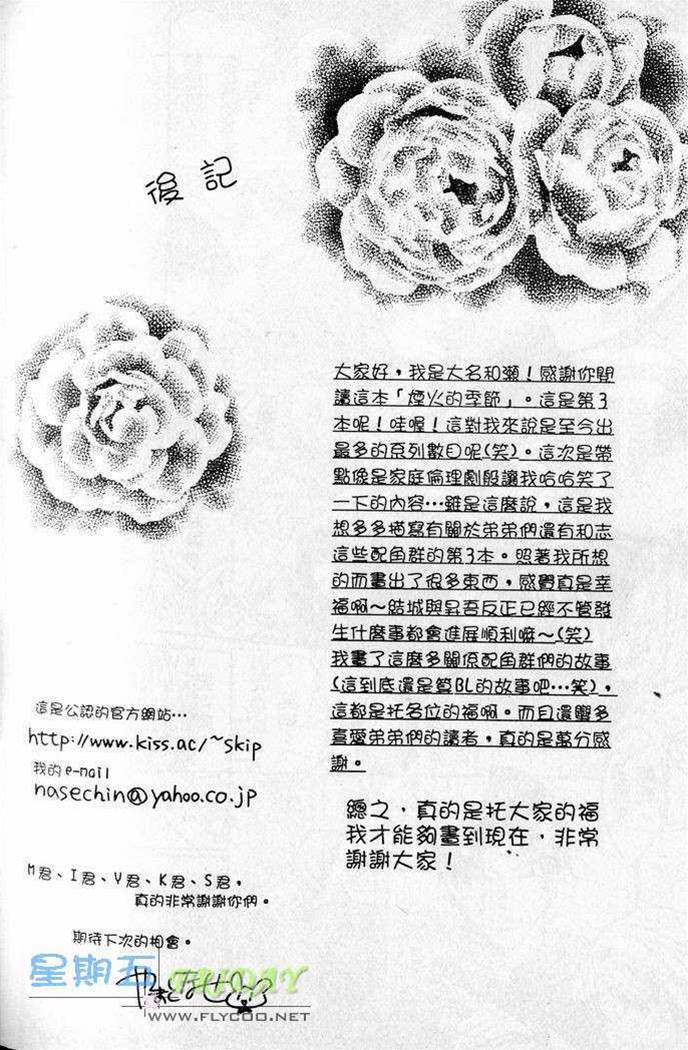 後記
大家好，我是大名和瀨！感謝你閱
讀這本「煙火的季節」。這是第3
本呢！哇喔！這對我來說是至今出
最多的系列數目呢(笑)。這次是帶
點像是家庭倫理劇般讓我哈哈笑了
一下的內容…雖是這麼說，這是我
想多多描寫有關於弟弟們還有和志
這些配角群的第3本。照著我所想
的而畫出了很多東西，感覺真是幸
福啊～結城與昇吾反正已經不管發
生什麼事都會進展順利嘛～(笑)
我畫了這麼多關係配角群們的故事
(這到底還是算BL的故事吧…笑)，
這都是托各位的福啊。而且還蠻多
喜愛弟弟們的讀者，真的是萬分感
謝。
總之，真的是托大家的福
我才能夠畫到現在，非常
謝謝大家！
這是公認的官方網站…
http://www.kiss.ac/~skip
我的e-mail
nasechin@yahoo.co.jp
M君、I君、Y君、K君、S君，
真的非常謝謝你們。
期待下次的相會。
やまとなせ
星期五 FRIDAY
WWW.FLYCOO.NET